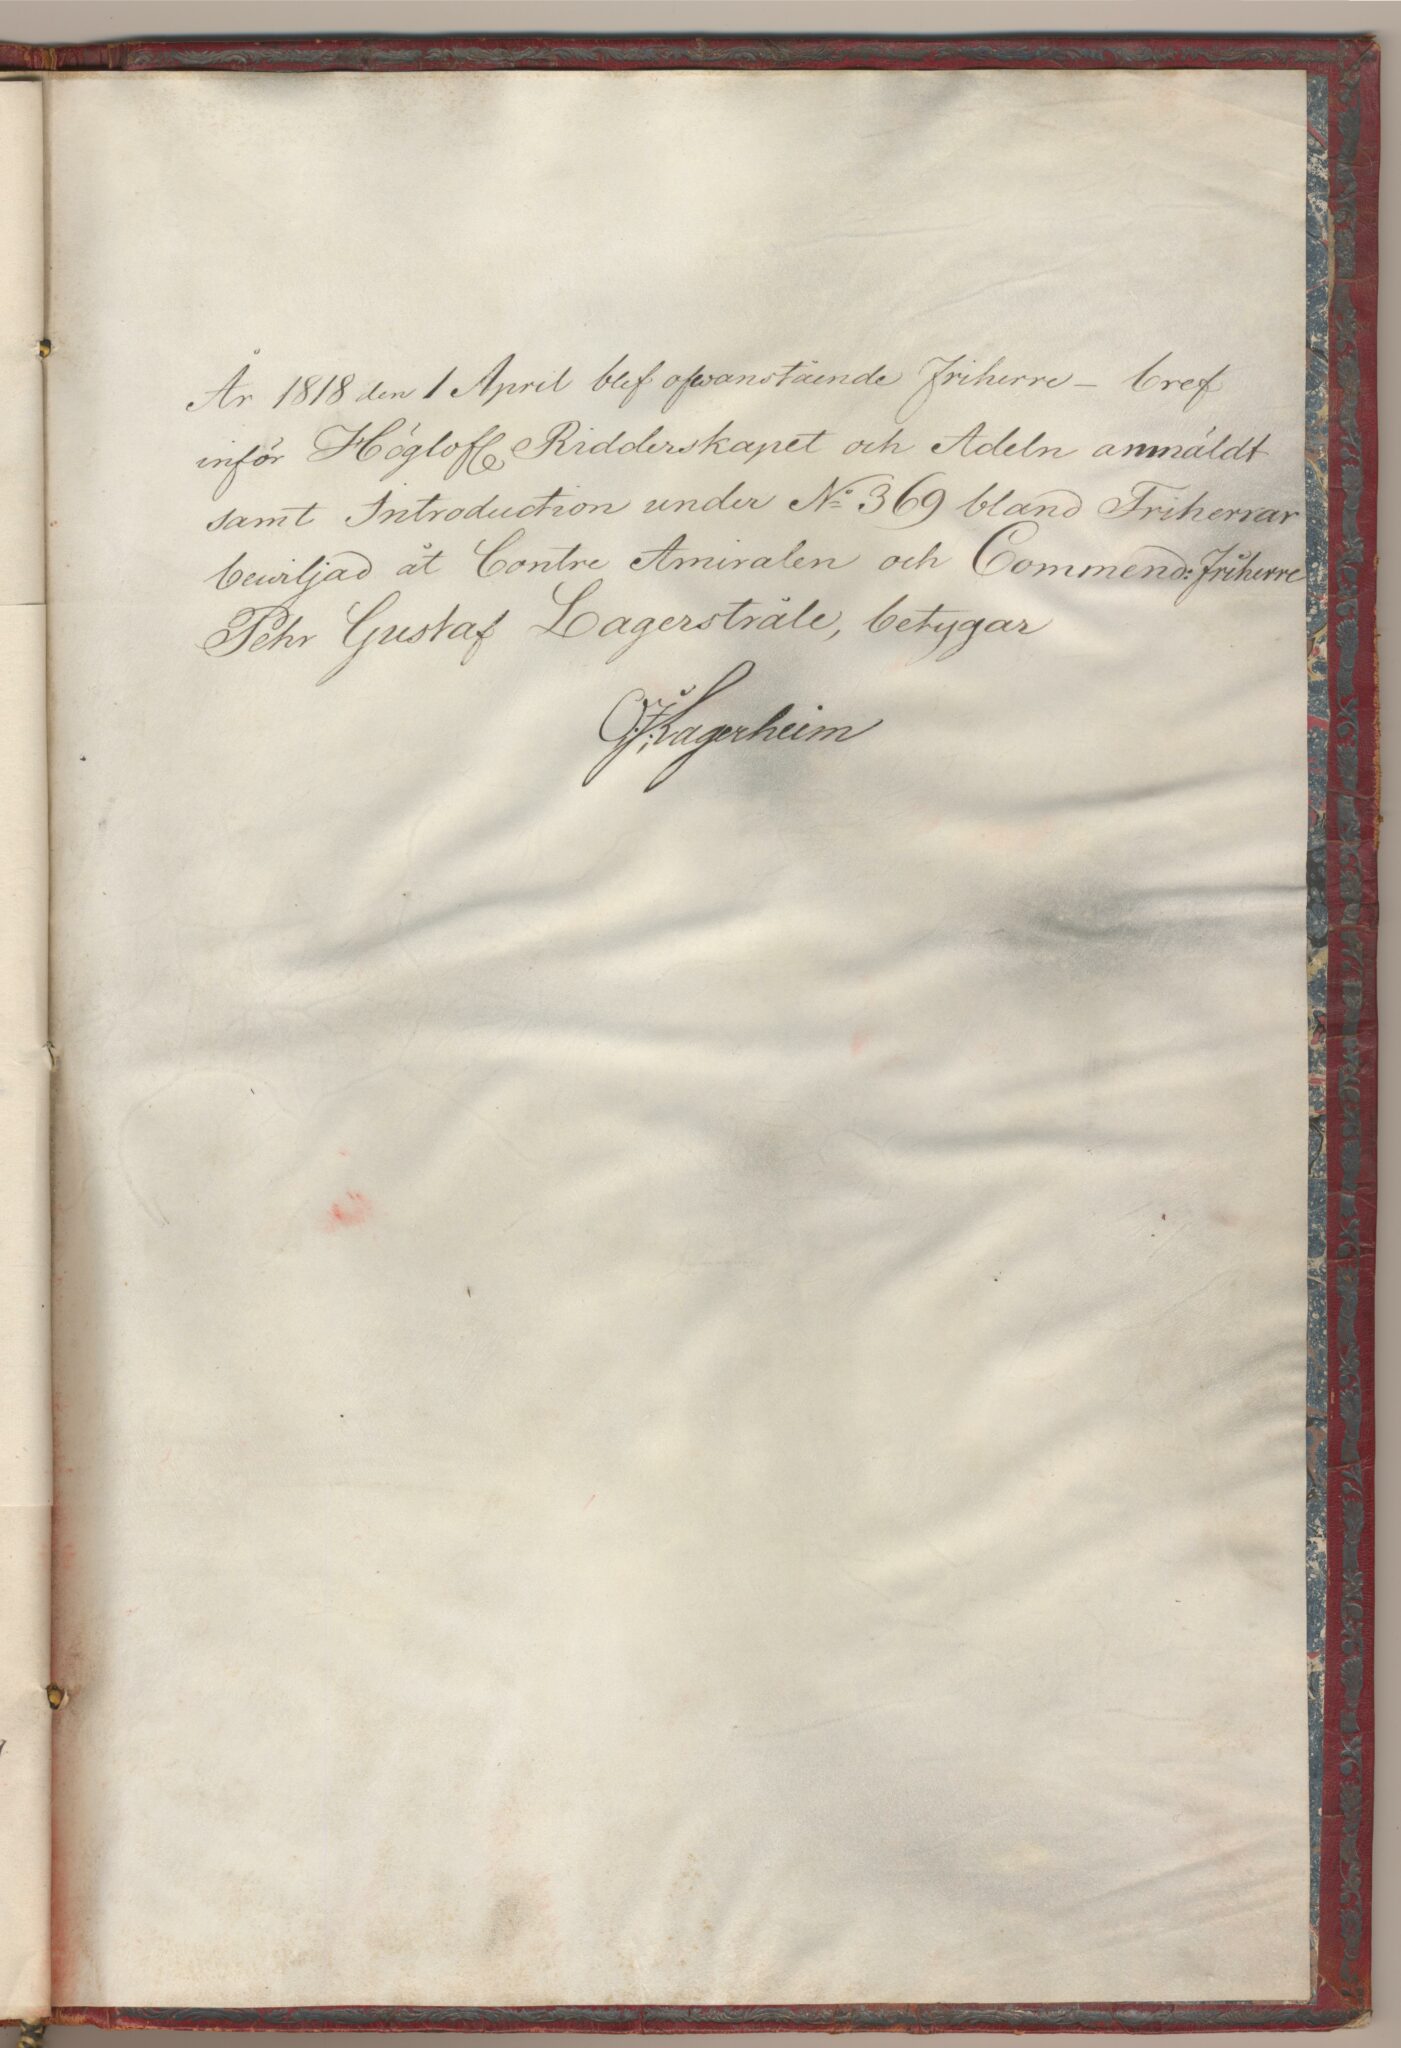 År 1818 den 1 April blef ofwanstående Friherre - bref
inför Höglofl. Ridderskapet och Adeln anmäldt
samt Introduction under No 369 bland Friherrar
bewiljad åt Contre Amiralen och Commend: Friherre
Pehr Gustaf Lagerstråle, betygar
Lagerheim